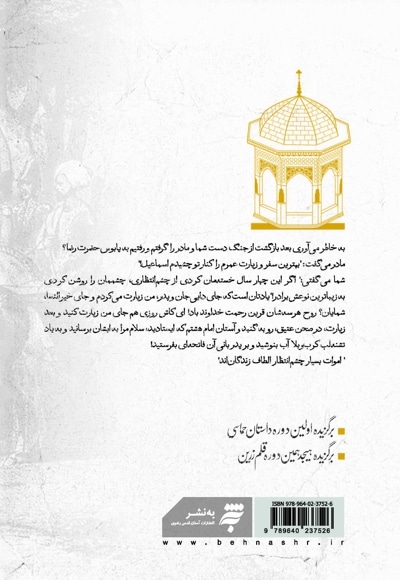 به خاطر می‌آوری بعد بازگشت از جنگ دست شما و مادر را گرفتم و رفتیم به پابوس حضرت رضا؟
مادر می‌گفت: "بهترین سفر و زیارت عمرم را کنار تو چشیدم اسماعیل!"
شما می‌گفتی: "اگر این چهار سال خسته‌مان کردی از چشم‌انتظاری، چشممان را روشن کردی
به زیباترین نوعش برادر! یادتان است که جای دایی‌جان و پدر، من زیارت می‌کردم و جای خیرالنسا،
شمایان؟ روح هر سه‌شان قرین رحمت خداوند باد! ای کاش روزی هم جای من زیارت کنید و بعد
زیارت، در صحن عتیق، رو به گنبد و آستان امام هشتم که ایستادید، سلام مرا به ایشان برسانید و به یاد
تشنه‌لب کرب‌وبلا آب بنوشید و بر پدر بانی آن فاتحه‌ای بفرستید!
"اموات بسیار چشم‌انتظار الطاف زندگان‌اند"
برگزیده اولین دوره داستان حماسی
برگزیده هیجدهمین دوره قلم زرین
ISBN 978-964-02-3752-6
9 789640 237526
به‌نشر
انتشارات آستان قدس رضوی
www.behnashr.ir